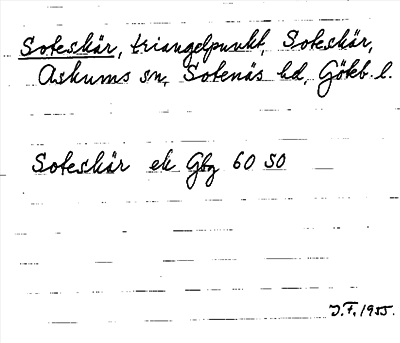 Soteskär, triangelpunkt, Soteskär,
Askums sn, Sotenäs hd, Göteb. l.
Soteskär ek Gbg 60 SO
J.F. 1955.